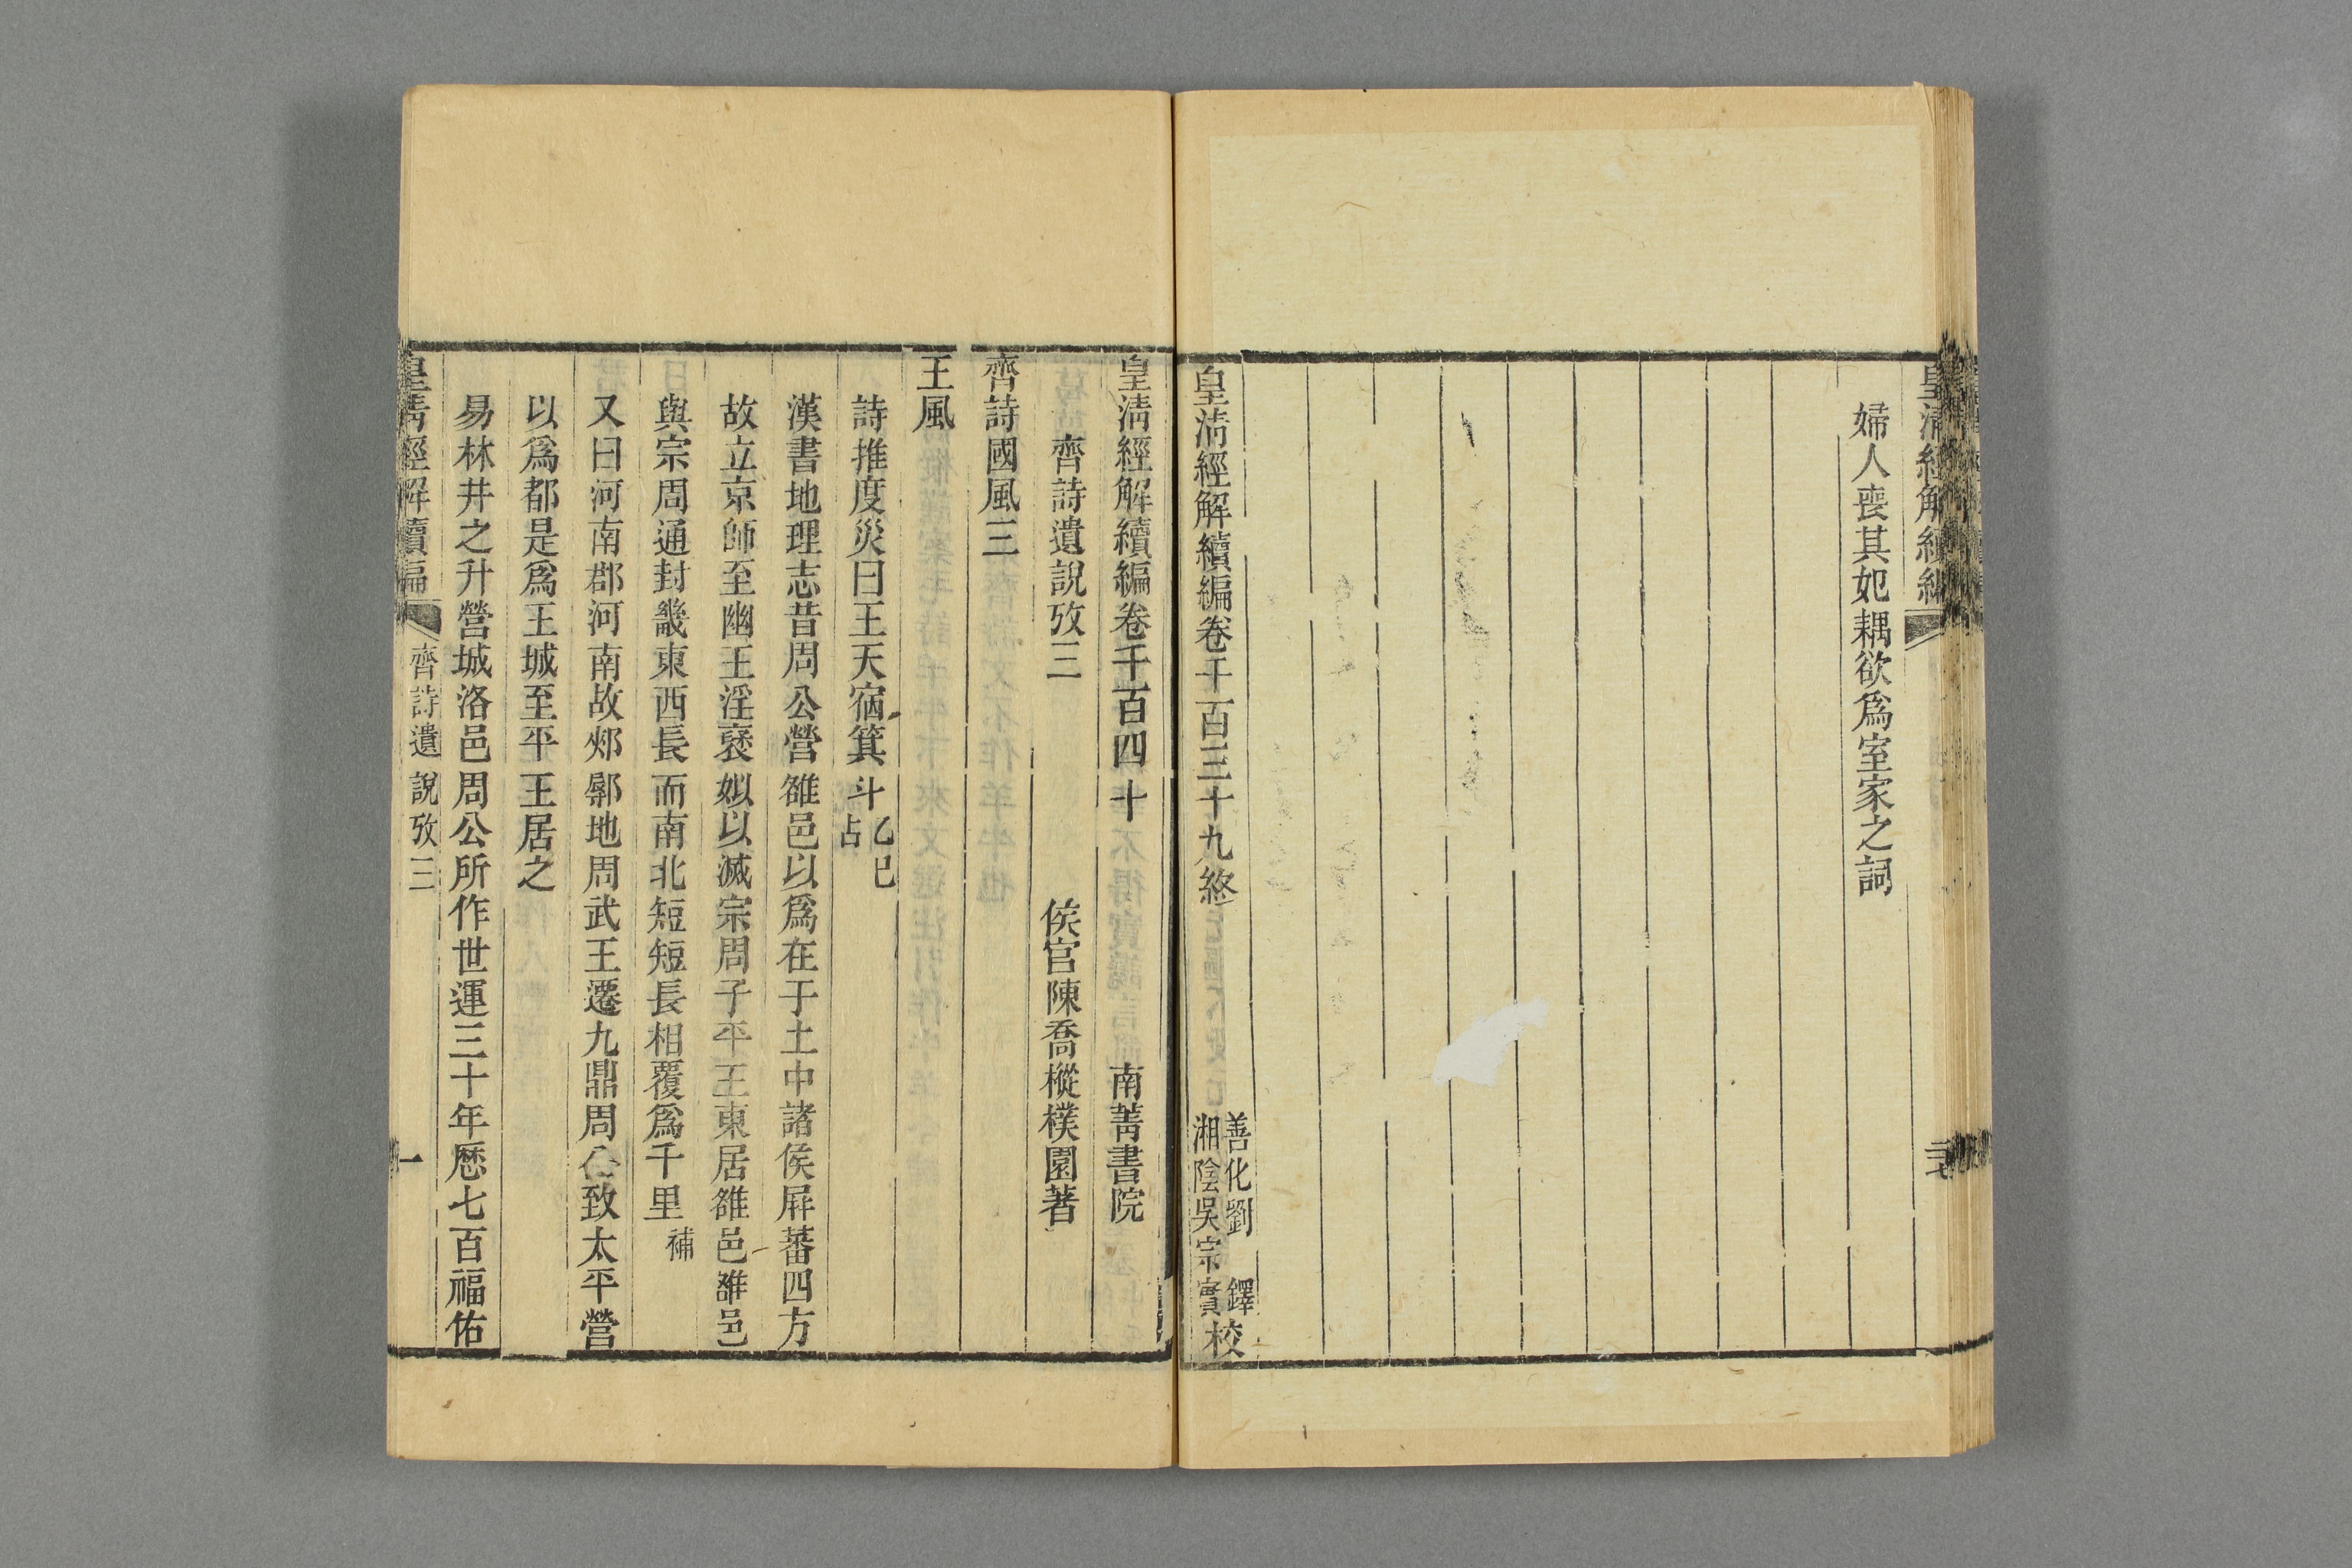 皇清經解續編
婦人喪其妃耦欲爲室家之詞
皇清經解續編卷千百三十九終
善化劉鐸
湘陰吳宗實校
皇清經解續編卷千百四十
南菁書院
齊詩遺說攷三
侯官陳喬樅樸園著
齊詩國風三
王風
詩推度災曰王天宿箕斗乙巳占
漢書地理志昔周公營雒邑以爲在于土中諸侯屏蕃四方
故立京師至幽王淫襃姒以滅宗周子平王東居雒邑雒邑
與宗周通封畿東西長而南北短短長相覆爲千里補
又曰河南郡河南故郟鄏地周武王遷九鼎周公致太平營
以爲都是爲王城至平王居之
易林井之升營城洛邑周公所作世運三十年厯七百福佑
皇清經解續編
齊詩遺說攷三
一